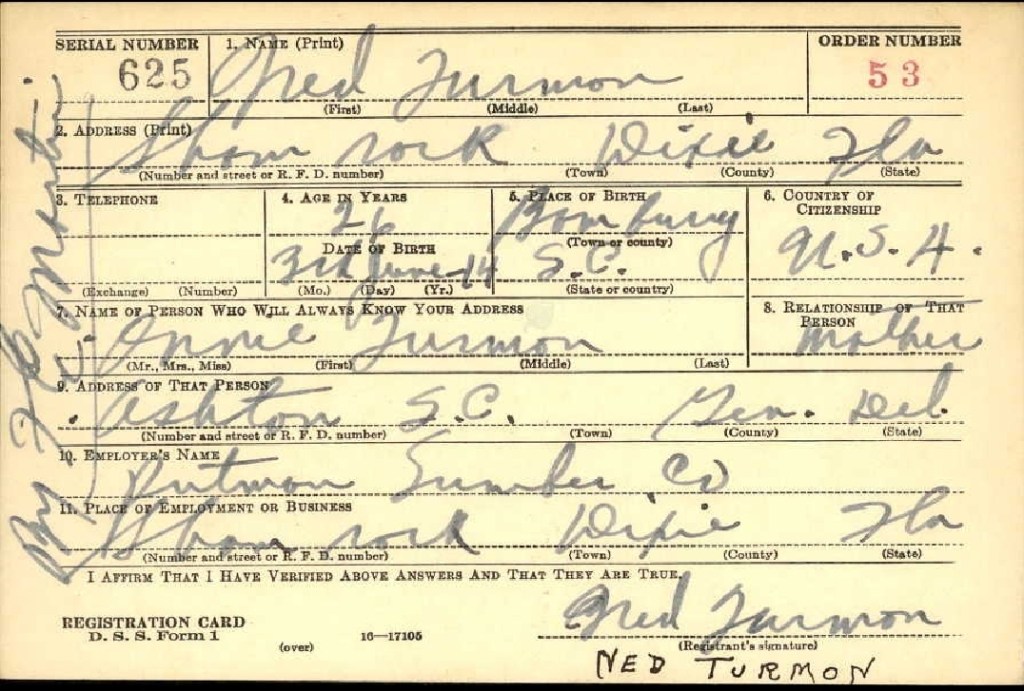 SERIAL NUMBER 1. NAME (Print) ORDER NUMBER
625 Ned Turmon 53
(First) (Middle) (Last)
2. ADDRESS (Print)
Sham rock Dixie Fla
(Number and street or R. F. D. number) (Town) (County) (State)
3. TELEPHONE 4. AGE IN YEARS 5. PLACE OF BIRTH 6. COUNTRY OF CITIZENSHIP
26 U.S.A.
DATE OF BIRTH (Town or county)
3th June-14 S.C.
(Exchange) (Number) (Mo.) (Day) (Yr.) (State or country)
7. NAME OF PERSON WHO WILL ALWAYS KNOW YOUR ADDRESS 8. RELATIONSHIP OF THAT PERSON
Annie Turmon Mother
(Mr., Mrs., Miss) (First) (Middle) (Last)
9. ADDRESS OF THAT PERSON
Ashton S.C. Gen. Del.
(Number and street or R. F. D. number) (Town) (County) (State)
10. EMPLOYER'S NAME
Putman Lumber Co
11. PLACE OF EMPLOYMENT OR BUSINESS
Sham rock Dixie Fla
(Number and street or R. F. D. number) (Town) (County) (State)
I AFFIRM THAT I HAVE VERIFIED ABOVE ANSWERS AND THAT THEY ARE TRUE.
REGISTRATION CARD Ned Turmon
D. S. S. Form 1 16—17105
(over) (Registrant's signature)
NED TURMON
By